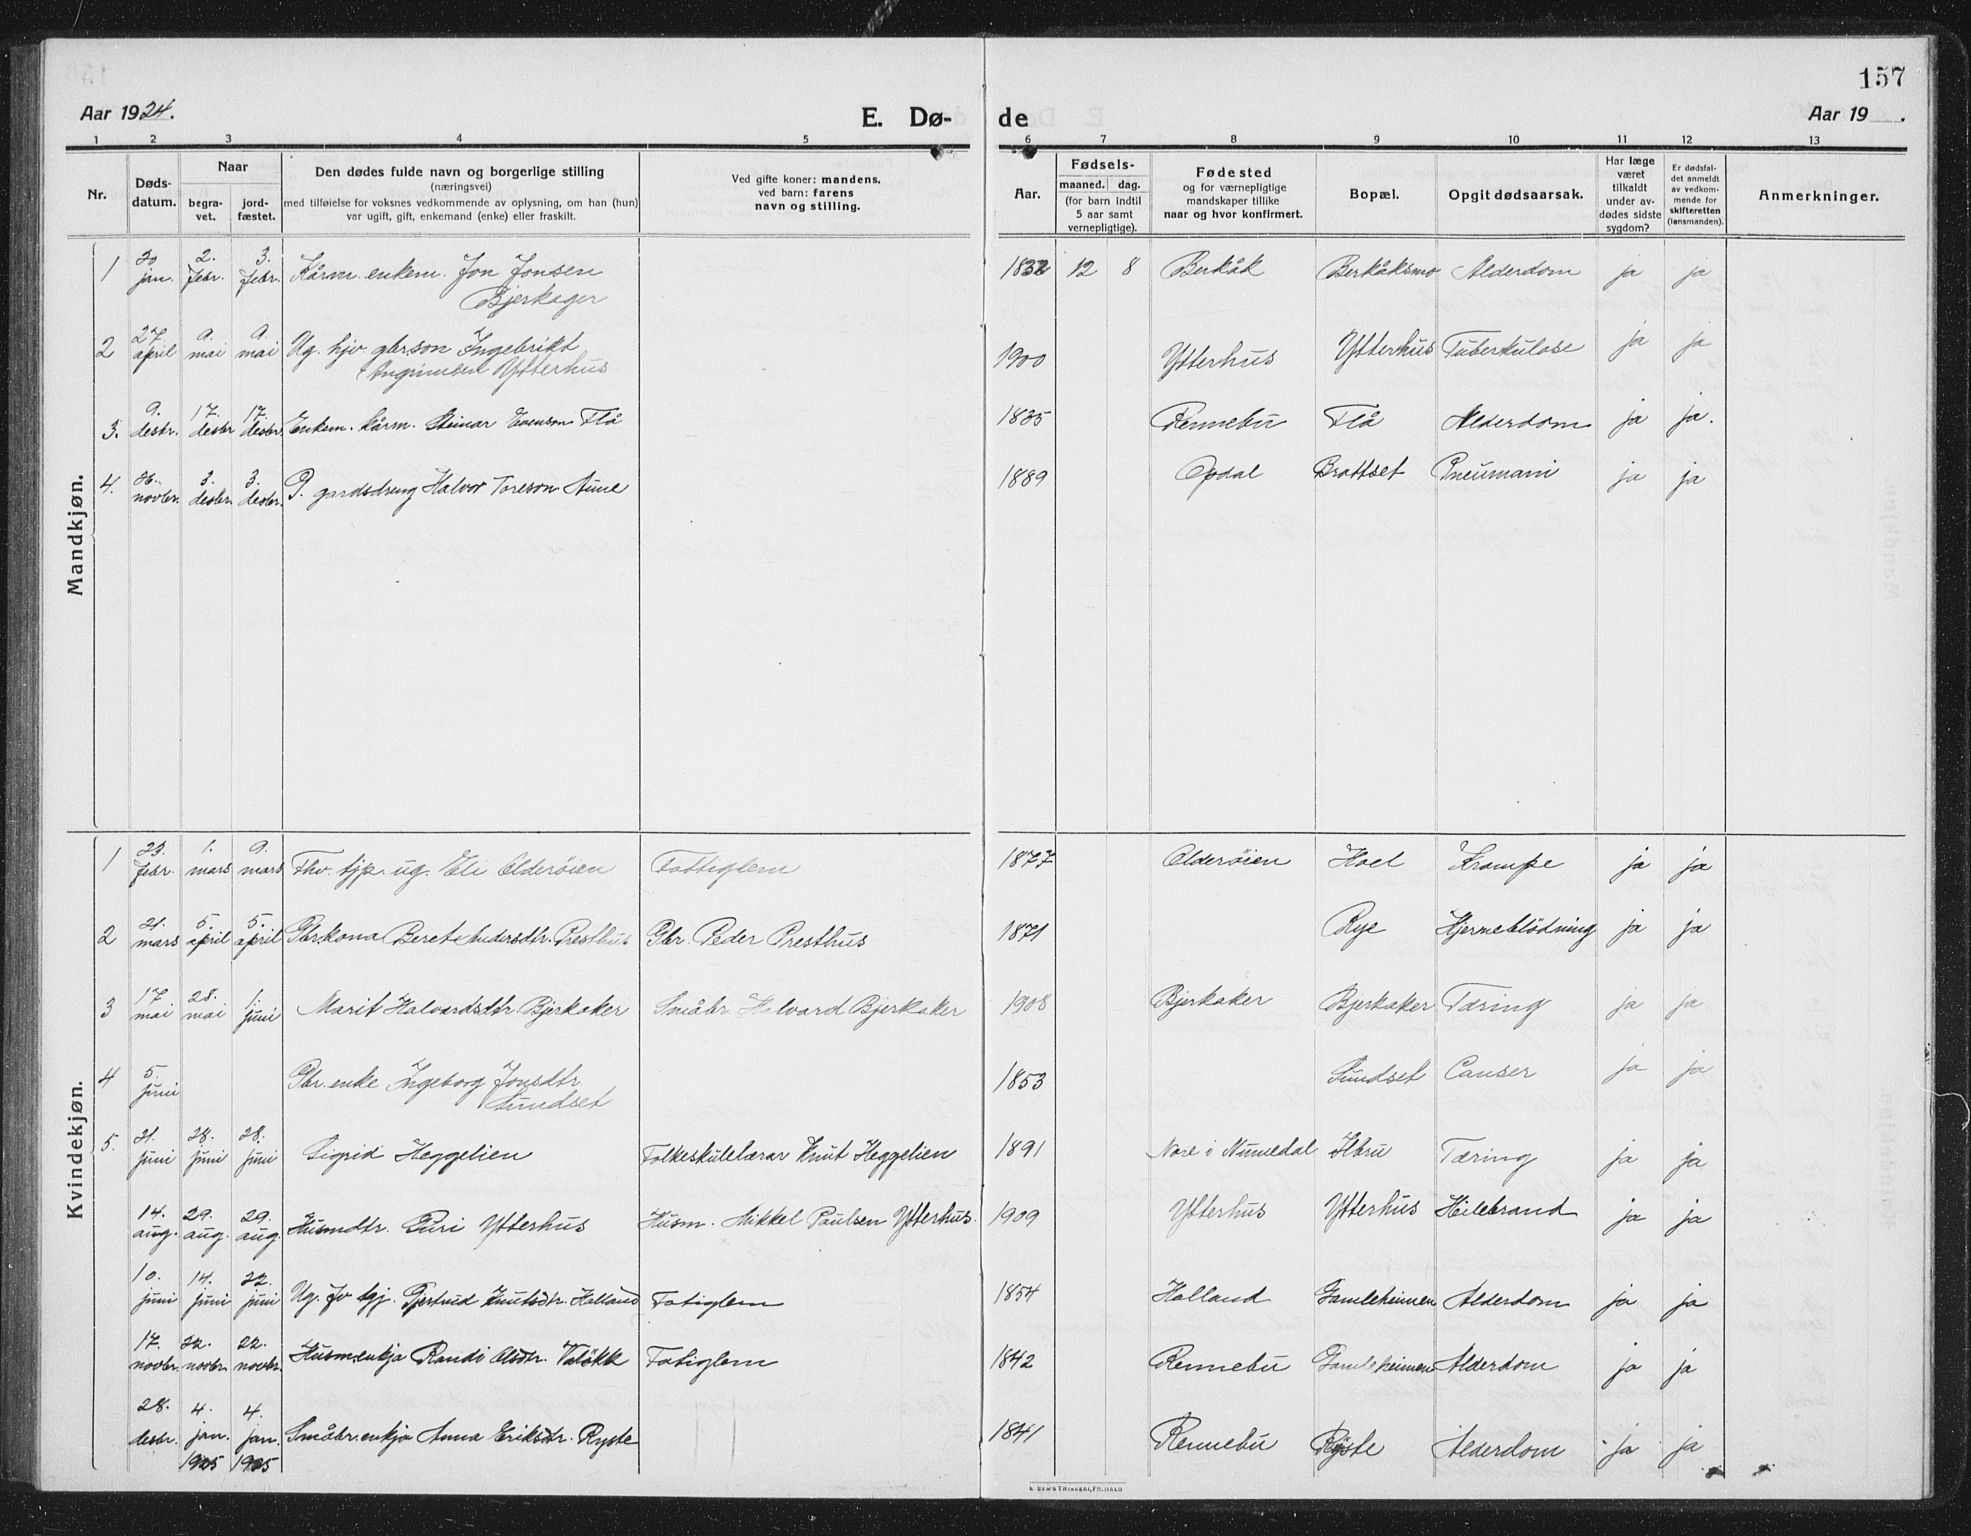 157
Aar 1924.
E. Dø-
de
Aar 19 .
1 2 3 4 5 6 7 8 9 10 11 12 13
Nr.
Døds-
datum.
Naar
begra-
vet.
jord-
fæstet.
Den dødes fulde navn og borgerlige stilling
(næringsvei)
med tilføielse for voksnes vedkommende av oplysning, om han (hun)
var ugift, gift, enkemand (enke) eller fraskilt.
Ved gifte koner: mandens,
ved barn: farens
navn og stilling.
Aar.
Fødsels-
maaned. dag.
(for barn indtil
5 aar samt
vernepligtige).
Fødested
og for værnepligtige
mandskaper tillike
naar og hvor konfirmert.
Bopæl.
Opgit dødsaarsak.
Har læge
været
tilkaldt
under av-
dødes sidste
sygdom?
Er dødsfal-
det anmeldt
av vedkom-
mende for
skifteretten
(lensmanden).
Anmerkninger.
Mandkjøn.
1 20 jan. 2. febr. 3. febr. Kårm. enkem. Jon Jonsen 1832 12 8 Berkåk Berkåksmo Alderdom ja ja
Bjerkager
2 27 april 9. mai 9 mai Ug. hjv. gbr.son Ingebrikt 1900 Ytterhus Ytterhus Tuberkulose ja ja
Ingrimsen Ytterhus
3. 9. desbr. 17. desbr 17. desbr. Enkem. kårm. Steinar Evenson Flå 1835 Rennebu Flå Alderdom ja ja.
4. 26. novbr. 3. desbr. 3. desbr. P. gardsdreng Halvor Toreson Aune 1889 Opdal Brattset Pneumani ja ja
Kvindekjøn.
1 23. febr. 1. mars 9. mars Fhv. tjp. ug. Eli Olderöien Fattiglem 1877 Olderöien Hoel Krampe ja ja
2 21. mars 5. april 5. april Gbrkona Beret Andersdtr. Presthus Gbr. Peder Presthus 1871 Rye Hjerneblödning ja ja
3 17 mai 28. mai 1. juni Marit Halvardsdtr. Bjerkaker Småbr. Halvard Bjerkaker 1908 Bjerkaker Bjerkaker Tæring ja ja
4 5. juni Gbr. enke Ingeborg Jonsdtr. 1853 Sundset Canser ja ja
Sundset
5. 21. juni 28. juni 28. juni Sigrid Heggelien Folkeskulelærar Knut Heggelien 1891 Nore i Numedal Ilbru Tæring ja ja
14. aug. 29. aug. 29. aug. Husmdtr. Guri Ytterhus Husm. Mikkel Paulsen Ytterhus. 1909 Ytterhus Ytterhus Heilebrand ja ja
10. juni 14. juni 22. juni Ug. fv tgj. Gjertrud Knutsdtr. Halland Fatiglem 1854 Halland Gamleheimen Alderdom ja ja
17. novbr. 22. novbr. 22. novbr. Husm.enkja Randi Olsdtr. Valökk Fatiglem 1842 Rennebu Gamleheimen Alderdom ja ja
28. desbr. 4. jan. 1925 4. jan. 1925 Småbr.enkja Anna Eriksdtr. Ryste 1841 Rennebu Ryste Alderdom ja ja